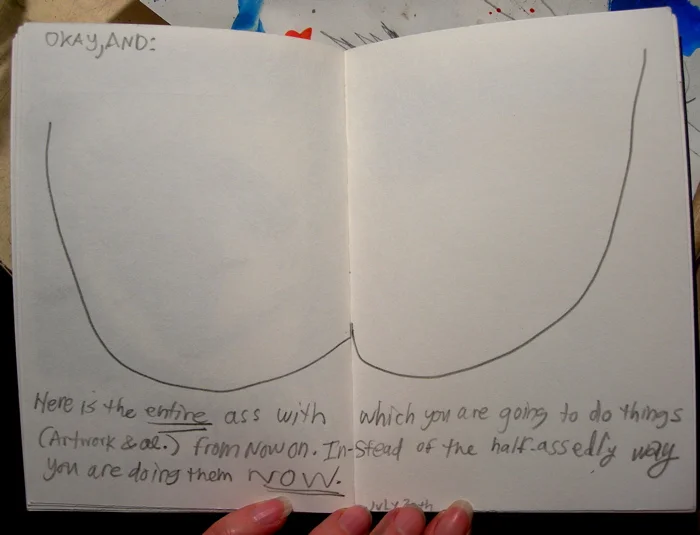 OKAY, AND:
Here is the entire ass with which you are going to do things
(Artwork & al.) from Now on. In-Stead of the half-assedly way
you are doing them NOW.
July